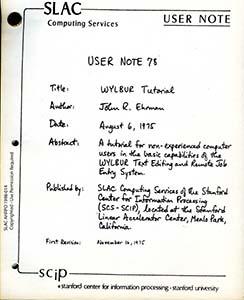 SLAC
Computing Services
USER NOTE
USER NOTE 78
Title: WYLBUR Tutorial
Author: John R. Ehrman
Date: August 6, 1975
Abstract: A tutorial for non-experienced computer
users in the basic capabilities of the
WYLBUR Text Editing and Remote Job
Entry System.
Published by: SLAC Computing Services of the Stanford
Center for Information Processing
(SCS-SCIP), located at the Stanford
Linear Accelerator Center, Menlo Park,
California.
First Revision: November 16, 1975
SLAC AHVPO 1998-014
Copyrighted - Use Permission Required
scip
stanford center for information processing · stanford university